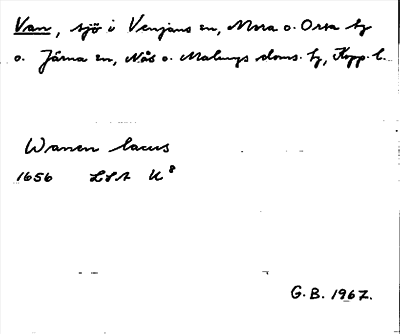 Van, sjö i Venjans sn, Mora o. Orsa tg
o. Järna sn, Nås o. Malungs doms. tg, Kopp. l.
Wanen lacus
1656 LSA U⁸
G.B. 1967.